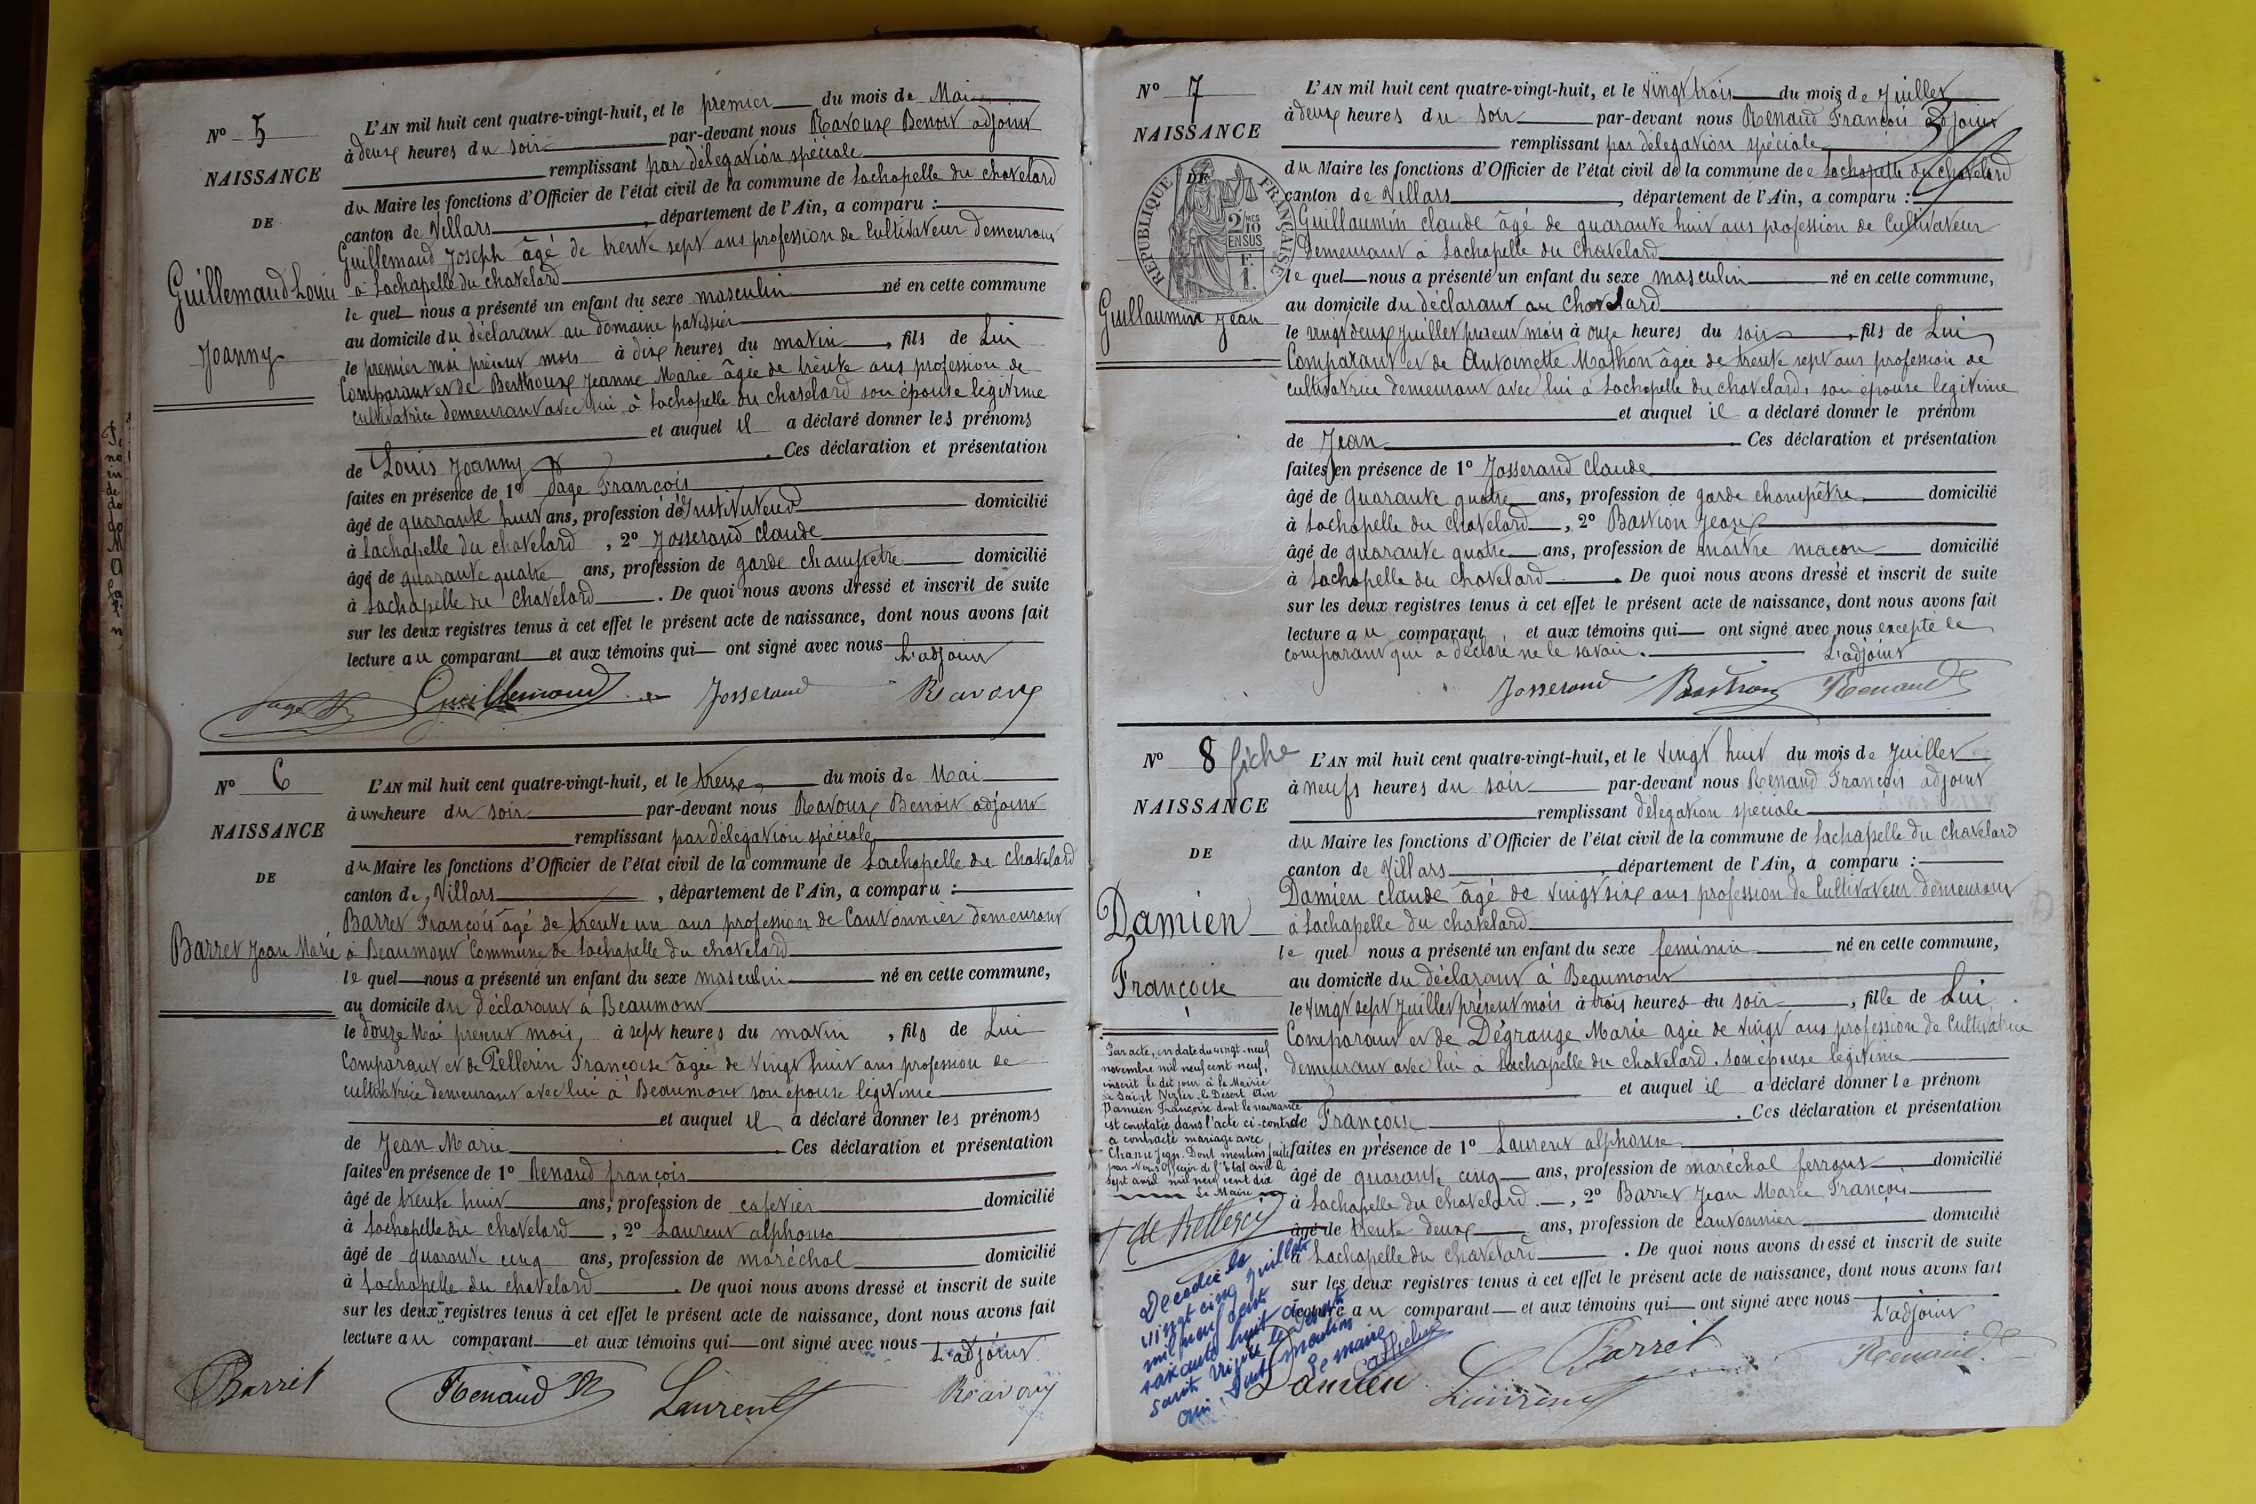 N° 5
NAISSANCE
DE
Guillemaud Louis
Joanny
L'AN mil huit cent quatre-vingt-huit, et le premier du mois de Mai
à deux heures du soir par-devant nous Ravoux Benoit adjoint
remplissant par délégation spéciale
du Maire les fonctions d'Officier de l'état civil de la commune de Lachapelle du chatelard
canton de Villars, département de l'Ain, a comparu :
Guillemaud Joseph âgé de trente sept ans profession de Cultivateur demeurant
à Lachapelle du chatelard
le quel nous a présenté un enfant du sexe masculin né en cette commune
au domicile du déclarant au domaine patissier
le premier mai présent mois à dix heures du matin, fils de Lui
Comparant et de Berthoux Jeanne Marie âgée de trente ans profession de
cultivatrice demeurant avec lui à Lachapelle du chatelard son épouse légitime
et auquel il a déclaré donner les prénoms
de Louis Joanny. Ces déclaration et présentation
faites en présence de 1° Page François
âgé de quarante huit ans, profession de Instituteur domicilié
à Lachapelle du chatelard, 2° Josserand claude
âgé de quarante quatre ans, profession de garde champêtre domicilié
à Lachapelle du chatelard. De quoi nous avons dressé et inscrit de suite
sur les deux registres tenus à cet effet le présent acte de naissance, dont nous avons fait
lecture au comparant et aux témoins qui ont signé avec nous
L'adjoint
Page Guillemaud Josserand Ravoux
N° 6
NAISSANCE
DE
Barret Jean Marie
L'AN mil huit cent quatre-vingt-huit, et le treize du mois de Mai
à une heure du soir par-devant nous Ravoux Benoit adjoint
remplissant par délégation spéciale
du Maire les fonctions d'Officier de l'état civil de la commune de Lachapelle du chatelard
canton de Villars, département de l'Ain, a comparu :
Barret François âgé de trente un ans profession de Cantonnier demeurant
à Beaumont Commune de Lachapelle du chatelard
le quel nous a présenté un enfant du sexe masculin né en cette commune,
au domicile du déclarant à Beaumont
le douze Mai présent mois, à sept heures du matin, fils de Lui
Comparant et de Pellerin Françoise âgée de vingt huit ans profession de
cultivatrice demeurant avec lui à Beaumont son épouse légitime
et auquel il a déclaré donner les prénoms
de Jean Marie. Ces déclaration et présentation
faites en présence de 1° Renaud françois
âgé de trente huit ans, profession de cafetier domicilié
à Lachapelle du chatelard, 2° Laurent alphonse
âgé de quarante cinq ans, profession de maréchal domicilié
à Lachapelle du chatelard. De quoi nous avons dressé et inscrit de suite
sur les deux registres tenus à cet effet le présent acte de naissance, dont nous avons fait
lecture au comparant et aux témoins qui ont signé avec nous
L'adjoint
Barret Renaud Laurent Ravoux
N° 7
NAISSANCE
DE
RÉPUBLIQUE FRANÇAISE
2/10 EN SUS
Guillaumin Jean
L'AN mil huit cent quatre-vingt-huit, et le vingt trois du mois de Juillet
à deux heures du soir par-devant nous Renaud François adjoint
remplissant par délégation spéciale
du Maire les fonctions d'Officier de l'état civil de la commune de Lachapelle du Chatelard
canton de Villars, département de l'Ain, a comparu :
Guillaumin claude âgé de quarante huit ans profession de Cultivateur
demeurant à Lachapelle du Chatelard
le quel nous a présenté un enfant du sexe masculin né en cette commune,
au domicile du déclarant au Chatelard
le vingt deux Juillet présent mois à onze heures du soir, fils de Lui
Comparant et de Antoinette Mathon âgée de trente sept ans profession de
cultivatrice demeurant avec lui à Lachapelle du chatelard, son épouse légitime
et auquel il a déclaré donner le prénom
de Jean. Ces déclaration et présentation
faites en présence de 1° Josserand claude
âgé de quarante quatre ans, profession de garde champêtre domicilié
à Lachapelle du chatelard, 2° Bastion Jean
âgé de quarante quatre ans, profession de maître maçon domicilié
à Lachapelle du chatelard. De quoi nous avons dressé et inscrit de suite
sur les deux registres tenus à cet effet le présent acte de naissance, dont nous avons fait
lecture au comparant, et aux témoins qui ont signé avec nous excepté le
comparant qui a déclaré ne le savoir.
L'adjoint
Josserand Bastion Renaud
N° 8 fiche
NAISSANCE
DE
Damien
Françoise
L'AN mil huit cent quatre-vingt-huit, et le vingt huit du mois de Juillet
à neufs heures du soir par-devant nous Renaud François adjoint
remplissant délégation spéciale
du Maire les fonctions d'Officier de l'état civil de la commune de Lachapelle du chatelard
canton de Villars, département de l'Ain, a comparu :
Damien claude âgé de vingt six ans profession de Cultivateur demeurant
à Lachapelle du chatelard
le quel nous a présenté un enfant du sexe feminin né en cette commune,
au domicile du déclarant à Beaumont
le vingt sept Juillet présent mois à trois heures du soir, fille de Lui
Comparant et de Dégrange Marie agée de vingt ans profession de Cultivatrice
demeurant avec lui à Lachapelle du chatelard. son épouse légitime
et auquel il a déclaré donner le prénom
de Françoise. Ces déclaration et présentation
faites en présence de 1° Laurent alphonse
âgé de quarante cinq ans, profession de maréchal ferrant domicilié
à Lachapelle du chatelard, 2° Barret Jean Marie François
âgé de trente deux ans, profession de cantonnier domicilié
à Lachapelle du chatelard. De quoi nous avons dressé et inscrit de suite
sur les deux registres tenus à cet effet le présent acte de naissance, dont nous avons fait
lecture au comparant et aux témoins qui ont signé avec nous
L'adjoint
Damien Laurent Barret Renaud
Par acte, en date du vingt-neuf
novembre mil neuf cent neuf,
inscrit le dit jour à la Mairie
de Saint Nizier le Désert (Ain
Damien Françoise dont la naissance
est constatée dans l'acte ci-contre
a contracté mariage avec
Chanu Jean. Dont mention faite
par Nous Officier de l'Etat civil le
sept avril mil neuf cent dix
Le Maire
Decedée le
vingt cinq juillet
mil neuf cent
soixante huit à